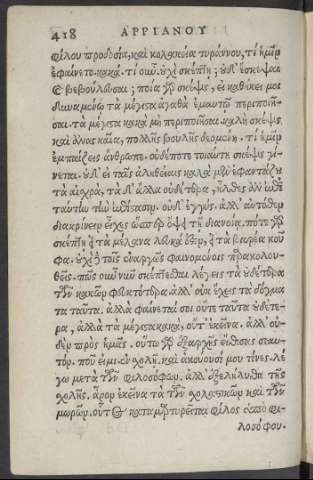 418 ΑΡΡΙΑΝΟΥ
φίλου προδοσία, καὶ κολακεία τυράννου, τί ἡμῖν
ἐφαίνετο. κακά. τί οὖν. οὐχὶ σκέπτῃ; οὐδ' ἐσκέψω
καὶ βεβούλευσαι; ποία γὰρ σκέψις, εἰ καθήκει μοι
δυναμένῳ τὰ μέγιστα ἀγαθὰ ἐμαυτῷ περιποιῆ-
σαι. τὰ μέγιστα κακὰ μὴ περιποιῆσαι. καλὴ σκέψις
καὶ ἀναγκαία, πολλῆς βουλῆς δεομένη. τί ἡμῖν
ἐμπαίζεις ἄνθρωπε. οὐδέποτε τοιαύτη σκέψις γί-
νεται. οὐδ' εἰ ταῖς ἀληθείαις κακὰ μὲν ἐφαντάζου
τὰ αἰσχρά, τὰ δ' ἄλλα οὐδέτερα, ἦλθες ἂν ἐπὶ
ταύτην τὴν ἐπίστασιν. οὐδ' ἐγγύς. ἀλλ' αὐτόθεν
διακρίνειν εἶχες ὥσπερ ὄψει τῇ διανοίᾳ. πότε γὰρ
σκέπτῃ εἰ τὰ μέλανα λευκά ἐστιν, εἰ τὰ βαρέα κοῦ
φα. οὐχὶ δὲ τοῖς ἐναργῶς φαινομένοις ἐπακολου-
θεῖς. πῶς οὖν νῦν σκέπτεσθαι λέγεις τὰ οὐδέτερα
τῶν κακῶν φευκτότερα. ἀλλ' οὐκ ἔχεις τὰ δόγμα
τα ταῦτα. ἀλλὰ φαίνεταί σοι οὔτε ταῦτα οὐδέτε-
ρα, ἀλλὰ τὰ μέγιστα κακά, οὔτ' ἐκεῖνα. ἀλλ' οὐ-
δὲν πρὸς ἡμᾶς. οὕτω γὰρ ἐξαρχῆς εἴθισας σεαυ-
τόν. ποῦ εἰμί. ἐν σχολῇ. καὶ ἀκούουσί μου τίνες. λέ
γω μετὰ τῶν φιλοσόφων. ἀλλ' ἐξελήλυθα τῆς
σχολῆς. ἆρον ἐκεῖνα τὰ τῶν σχολαστικῶν καὶ τῶν
μωρῶν. οὕτως καταμαρτυρεῖται φίλος ὑπὸ φι-
λοσόφου.